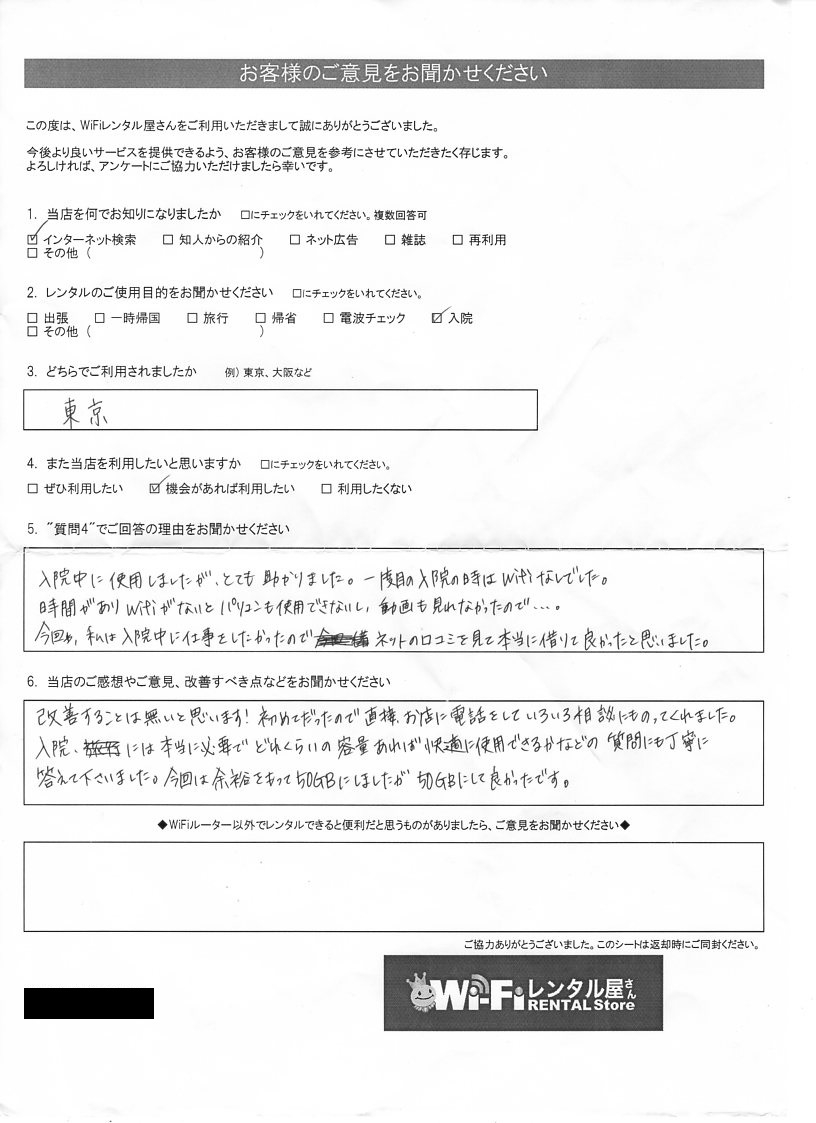 お客様のご意見をお聞かせください
この度は、WiFiレンタル屋さんをご利用いただきまして誠にありがとうございました。
今後より良いサービスを提供できるよう、お客様のご意見を参考にさせていただきたく存じます。
よろしければ、アンケートにご協力いただけましたら幸いです。
1. 当店を何でお知りになりましたか □にチェックをいれてください。複数回答可
☑ インターネット検索 □ 知人からの紹介 □ ネット広告 □ 雑誌 □ 再利用
□ その他 ( )
2. レンタルのご使用目的をお聞かせください □にチェックをいれてください。
□ 出張 □ 一時帰国 □ 旅行 □ 帰省 □ 電波チェック ☑ 入院
□ その他 ( )
3. どちらでご利用されましたか 例) 東京、大阪など
東京
4. また当店を利用したいと思いますか □にチェックをいれてください。
□ ぜひ利用したい ☑ 機会があれば利用したい □ 利用したくない
5. "質問4"でご回答の理由をお聞かせください
入院中に使用しましたが、とても助かりました。一度目の入院の時はWifiなしでした。
時間がありWifiがないとパソコンも使用できないし、動画も見れなかったので…。
今回は、私は入院中に仕事をしたかったので ネットの口コミを見て本当に借りて良かったと思いました。
6. 当店のご感想やご意見、改善すべき点などをお聞かせください
改善することは無いと思います!初めてだったので直接、お店に電話をしていろいろ相談にものってくれました。
入院、には本当に必要でどれくらいの容量あれば快適に使用できるかなどの質問にも丁寧に
答えて下さいました。今回は余裕をもって50GBにしましたが50GBにして良かったです。
◆WiFiルーター以外でレンタルできると便利だと思うものがありましたら、ご意見をお聞かせください◆
ご協力ありがとうございました。このシートは返却時にご同封ください。
Wi-Fiレンタル屋さん
RENTAL Store